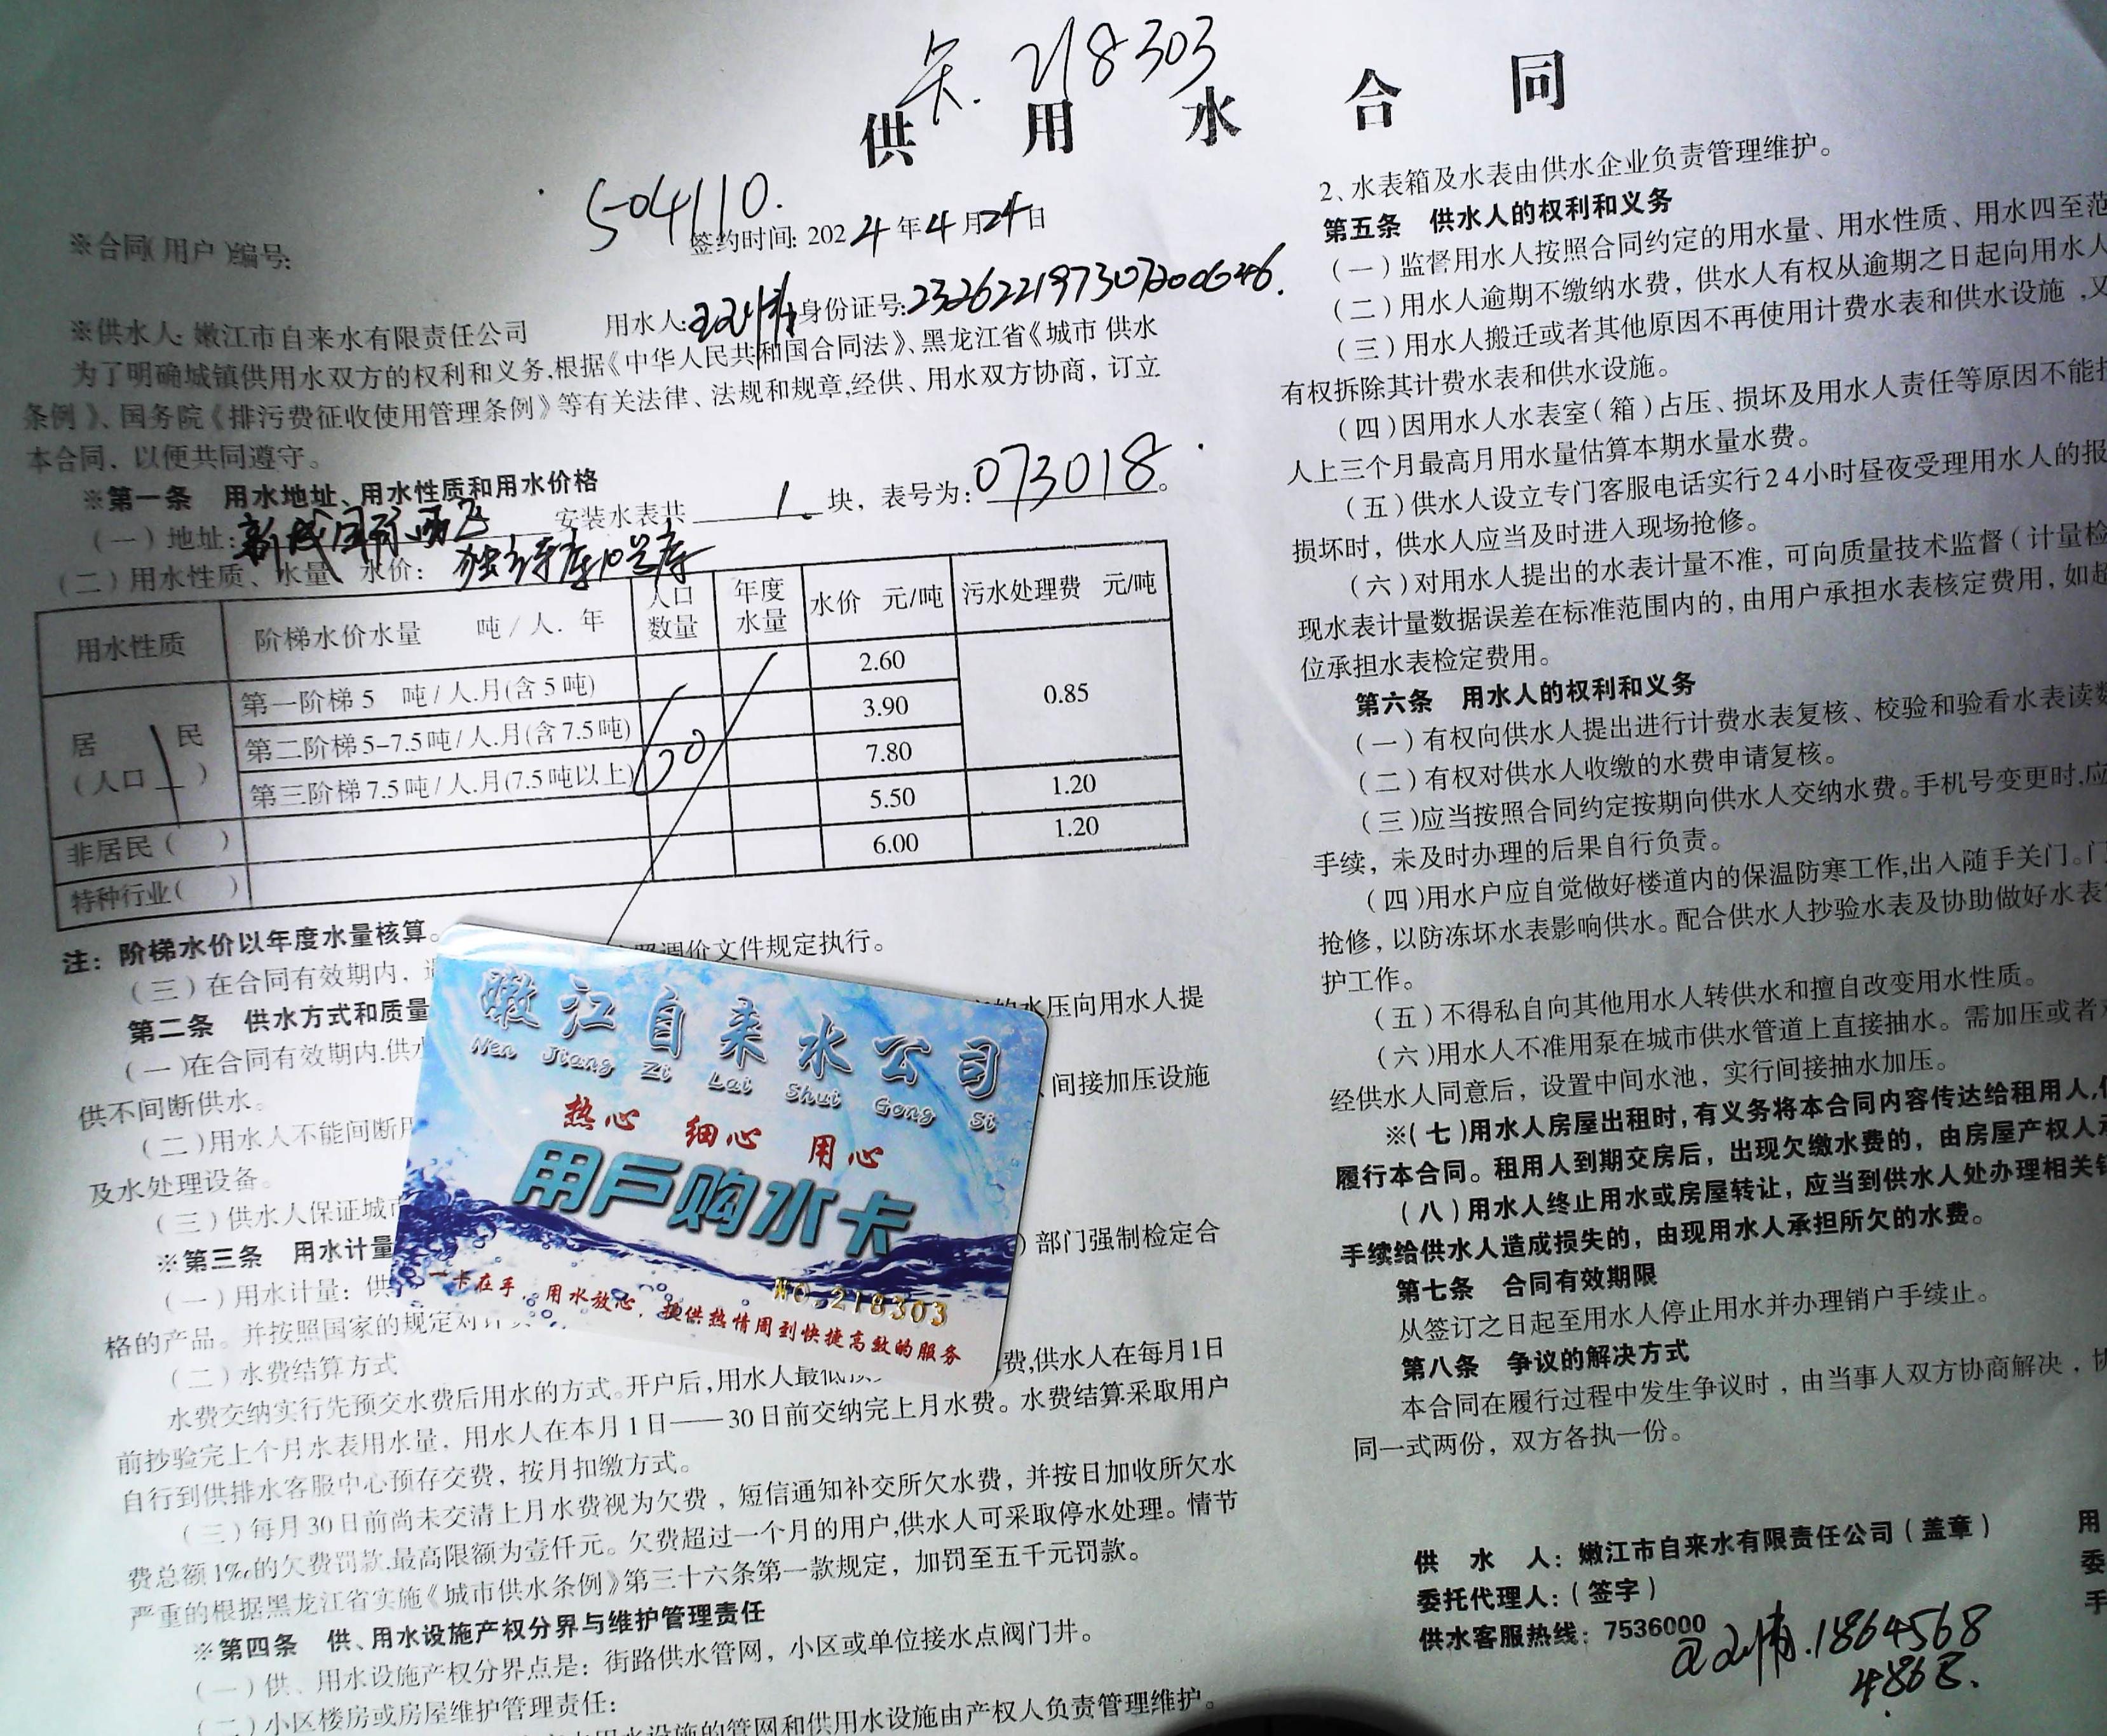 卡. 218303
供用水合同
504110.
签约时间: 2024年4月24日
※合同(用户)编号:
※供水人: 嫩江市自来水有限责任公司 用水人: 身份证号:232622197307200646.
为了明确城镇供用水双方的权利和义务,根据《中华人民共和国合同法》、黑龙江省《城市 供水
条例》、国务院《排污费征收使用管理条例》等有关法律、法规和规章,经供、用水双方协商，订立
本合同，以便共同遵守。
※第一条 用水地址、用水性质和用水价格
(一)地址: 安装水表共 1. 块，表号为: 073018。
(二)用水性质、水量、水价:
用水性质 阶梯水价水量 吨/人. 年 人口数量 年度水量 水价 元/吨 污水处理费 元/吨
居民(人口 ) 第一阶梯5 吨/人.月(含5吨) 2.60 0.85
第二阶梯5-7.5吨/人.月(含7.5吨) 3.90
第三阶梯7.5吨/人.月(7.5吨以上) 7.80
非居民( ) 5.50 1.20
特种行业( ) 6.00 1.20
注：阶梯水价以年度水量核算。
(三)在合同有效期内， 调价文件规定执行。
第二条 供水方式和质量
(一)在合同有效期内,供水 水压向用水人提
供不间断供水。
(二)用水人不能间断用 、间接加压设施
及水处理设备。
(三)供水人保证城市
※第三条 用水计量
(一)用水计量：供 )部门强制检定合
格的产品。并按照国家的规定对
(二)水费结算方式
水费交纳实行先预交水费后用水的方式。开户后,用水人最低 费,供水人在每月1日
前抄验完上个月水表用水量，用水人在本月1日——30日前交纳完上月水费。水费结算采取用户
自行到供排水客服中心预存交费，按月扣缴方式。
(三)每月30日前尚未交清上月水费视为欠费，短信通知补交所欠水费，并按日加收所欠水
费总额1‰的欠费罚款,最高限额为壹仟元。欠费超过一个月的用户,供水人可采取停水处理。情节
严重的根据黑龙江省实施《城市供水条例》第三十六条第一款规定，加罚至五千元罚款。
※第四条 供、用水设施产权分界与维护管理责任
(一)供、用水设施产权分界点是：街路供水管网，小区或单位接水点阀门井。
(二)小区楼房或房屋维护管理责任:
用水设施的管网和供用水设施由产权人负责管理维护。
嫩江自来水公司
Nen Jiang Zi Lai Shui Gong Si
热心 细心 用心
用户购水卡
NO.218303
一卡在手，用水放心，提供热情周到快捷高效的服务
2、水表箱及水表由供水企业负责管理维护。
第五条 供水人的权利和义务
(一)监督用水人按照合同约定的用水量、用水性质、用水四至范
(二)用水人逾期不缴纳水费，供水人有权从逾期之日起向用水人
(三)用水人搬迁或者其他原因不再使用计费水表和供水设施,又
有权拆除其计费水表和供水设施。
(四)因用水人水表室(箱)占压、损坏及用水人责任等原因不能
人上三个月最高月用水量估算本期水量水费。
(五)供水人设立专门客服电话实行24小时昼夜受理用水人的报
损坏时，供水人应当及时进入现场抢修。
(六)对用水人提出的水表计量不准，可向质量技术监督(计量检
现水表计量数据误差在标准范围内的，由用户承担水表核定费用，如超
位承担水表检定费用。
第六条 用水人的权利和义务
(一)有权向供水人提出进行计费水表复核、校验和验看水表读数
(二)有权对供水人收缴的水费申请复核。
(三)应当按照合同约定按期向供水人交纳水费。手机号变更时,应
手续，未及时办理的后果自行负责。
(四)用水户应自觉做好楼道内的保温防寒工作,出入随手关门。门
抢修，以防冻坏水表影响供水。配合供水人抄验水表及协助做好水表
护工作。
(五)不得私自向其他用水人转供水和擅自改变用水性质。
(六)用水人不准用泵在城市供水管道上直接抽水。需加压或者
经供水人同意后，设置中间水池，实行间接抽水加压。
※(七)用水人房屋出租时,有义务将本合同内容传达给租用人,
履行本合同。租用人到期交房后，出现欠缴水费的，由房屋产权人
(八)用水人终止用水或房屋转让，应当到供水人处办理相关
手续给供水人造成损失的，由现用水人承担所欠的水费。
第七条 合同有效期限
从签订之日起至用水人停止用水并办理销户手续止。
第八条 争议的解决方式
本合同在履行过程中发生争议时，由当事人双方协商解决，
同一式两份，双方各执一份。
供 水 人：嫩江市自来水有限责任公司(盖章)
委托代理人:(签字)
供水客服热线：7536000
18645684868.
用
委
手